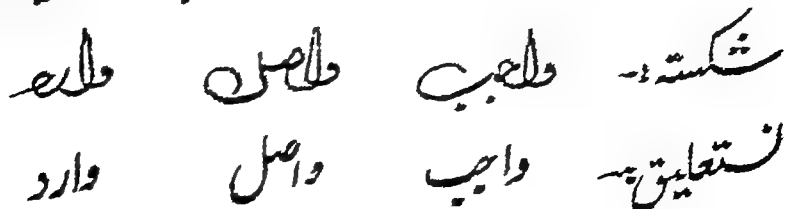 شکستہ :- واجب واصل وارد
نستعلیق :- واجب واصل وارد